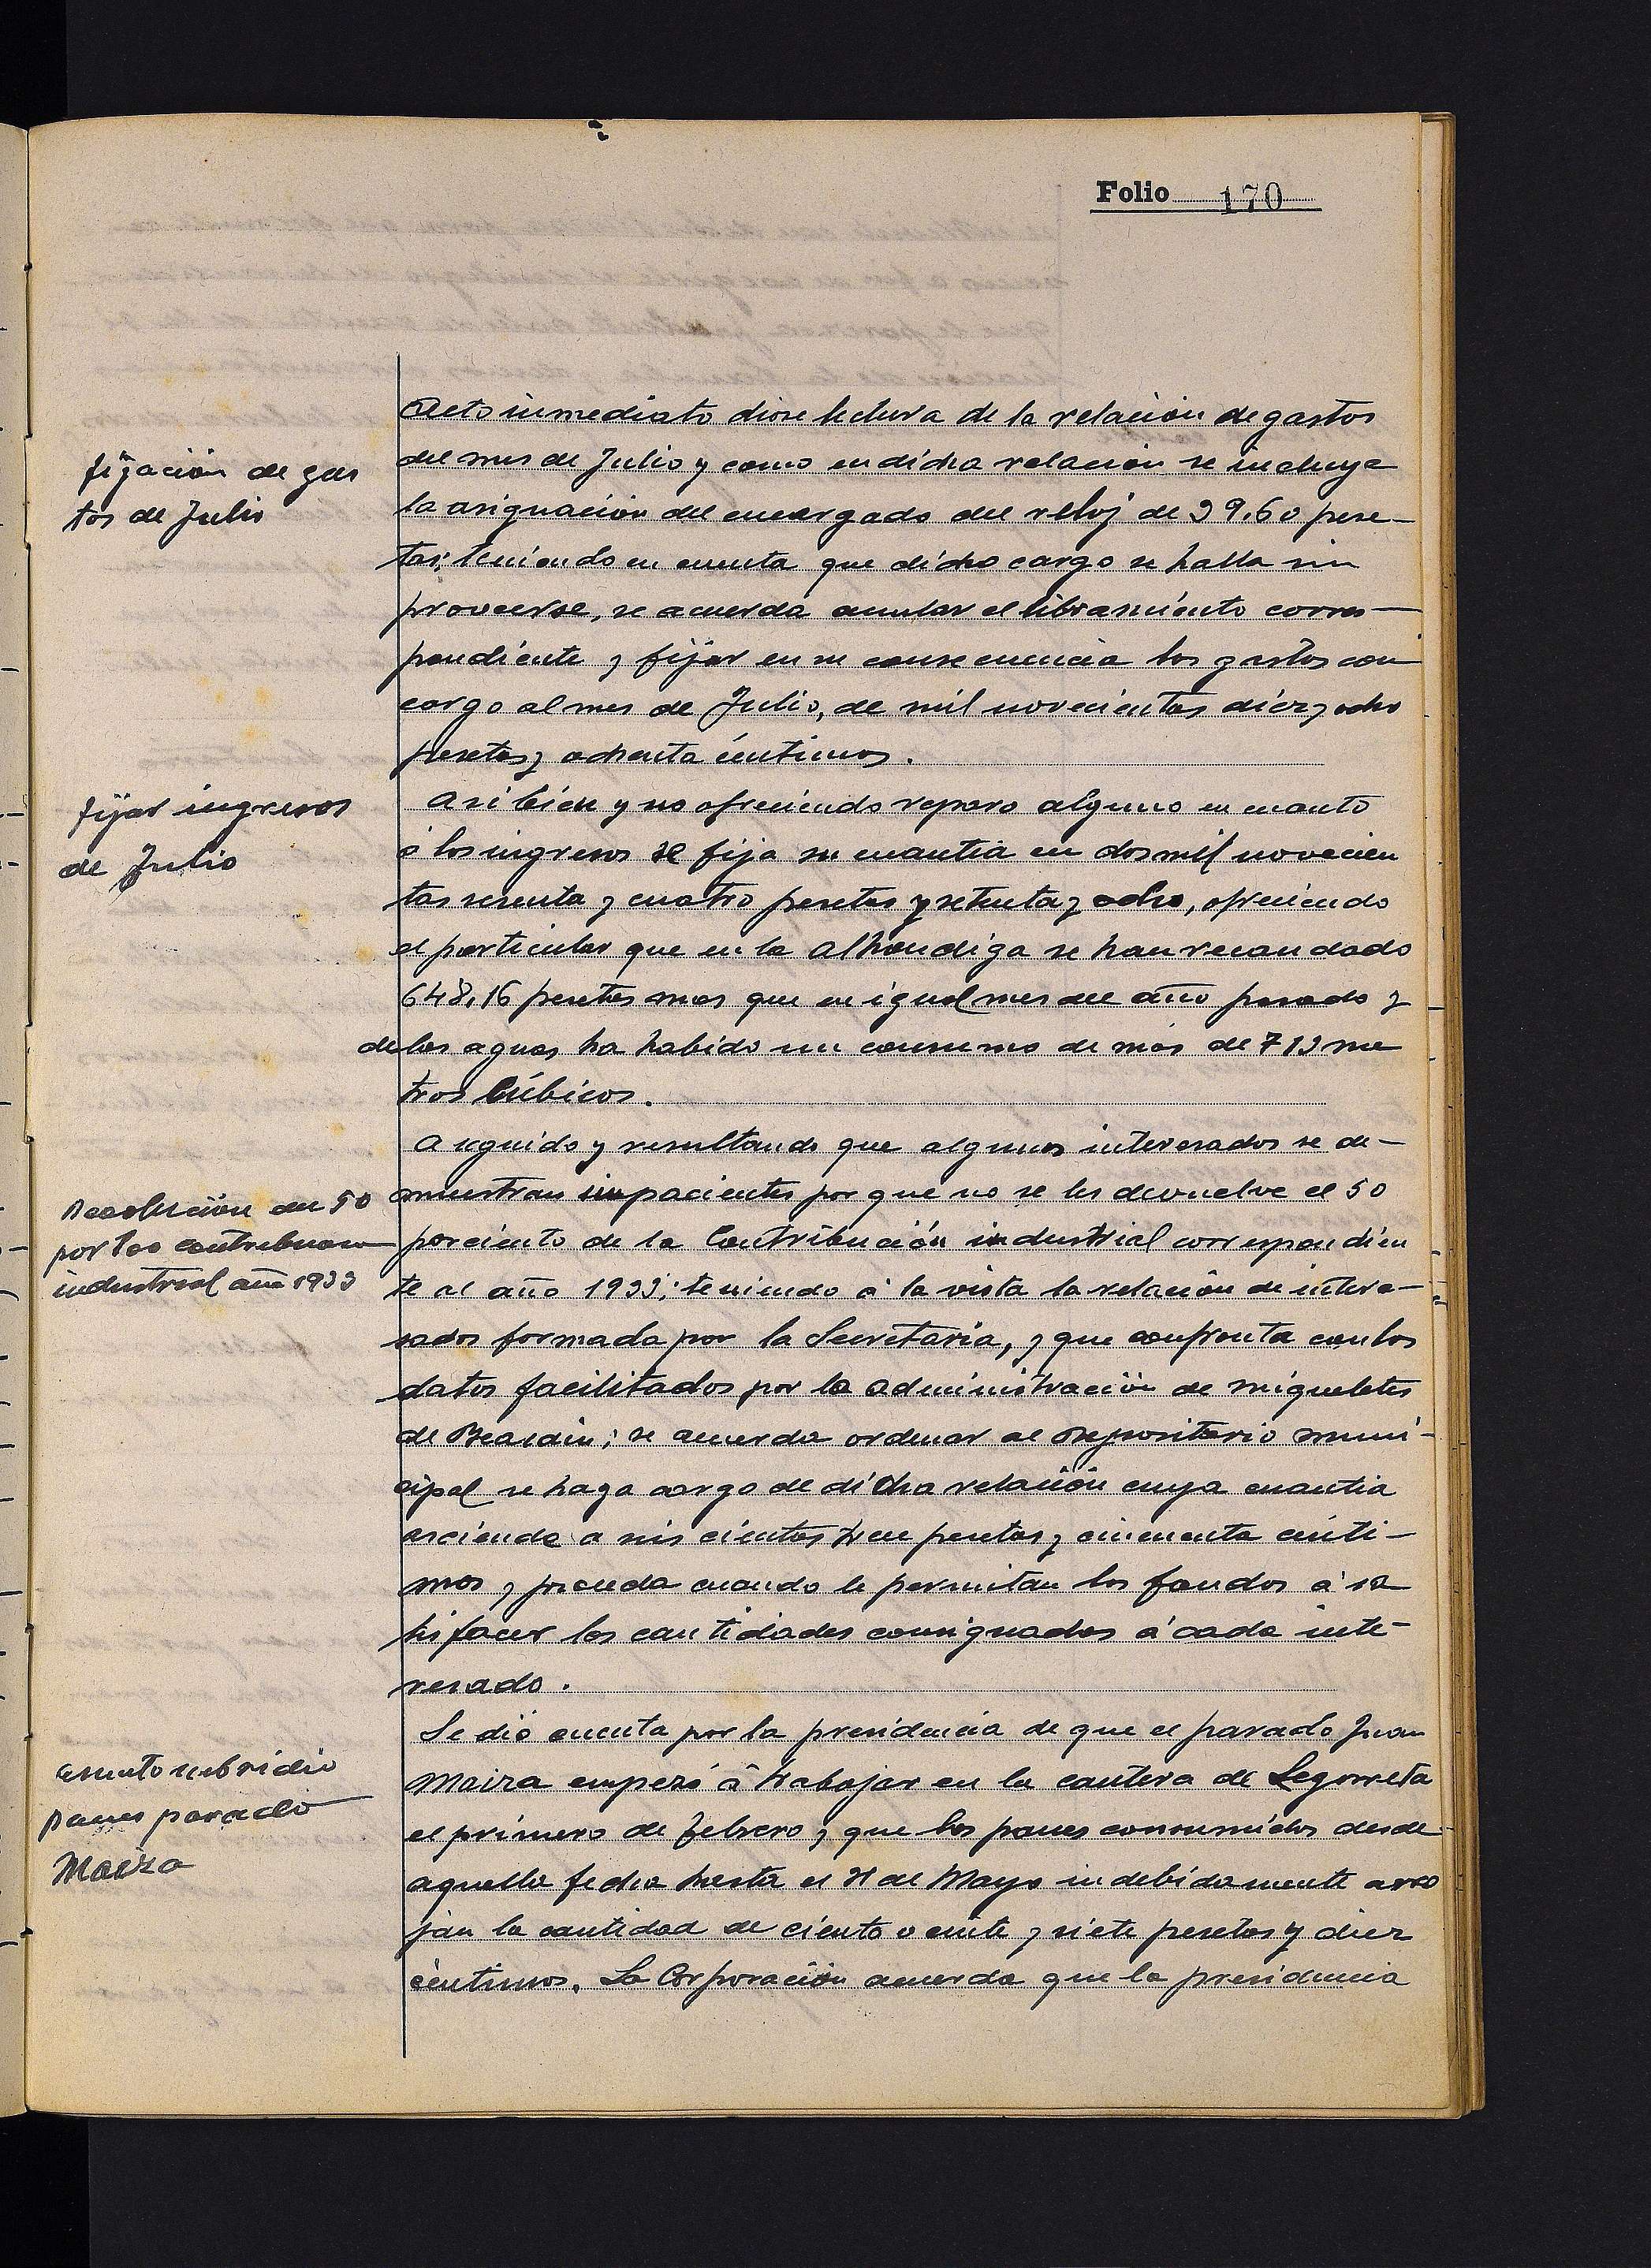 Folio 170
Acto inmediato diose lectura de la relación de gastos
fijación de gas
tos de Julio
del mes de Julio y como en dicha relación se incluye
la asignación del encargado del reloj de 39,60 pese-
tas; teniendo en cuenta que dicho cargo se halla sin
proveerse, se acuerda anular el libramiento corres-
pondiente y fijar en su consecuencia los gastos con
cargo al mes de Julio, de mil novecientas diez y ocho
pesetas y ochenta céntimos.
fijar ingresos
de Julio
Asi bien y no ofreciendo reparo alguno en cuanto
á los ingresos se fija su cuantia en dos mil novecien
tas sesenta y cuatro pesetas y setenta y ocho, ofreciendo
el particular que en la Alhondiga se han recaudado
648,16 pesetas mas que en igual mes del año pasado y
de las aguas ha habido un consumo de más de 713 me
tros cúbicos.
A seguido y resultando que algunos interesados se de-
Devolución del 50
por 100 contribucion
industrial año 1933
muestran impacientes por que no se les devuelve el 50
por ciento de la Contribución industrial correspondien
te al año 1933; teniendo á la vista la relación de intere-
sados formada por la Secretaria, y que confronta con los
datos facilitados por la administración de miqueletes
de Beasain; se acuerda ordenar al Depositario muni-
cipal se haga cargo de dicha relación cuya cuantia
asciende a seis cientas trece pesetas y cincuenta cénti-
mos y proceda cuando le permitan los fondos á sa
tisfacer las cantidades consignadas á cada inte-
resado.
asunto subsidio
panes parado
Maiza
Se dió cuenta por la presidencia de que el parado Juan
Maiza empezó á trabajar en la cantera de Legorreta
el primero de Febrero y que los panes consumidos desde
aquella fecha hasta el 31 de Mayo indebidamente arro
jan la cantidad de ciento veinte y siete pesetas y diez
céntimos. La Corporación acuerda que la presidencia